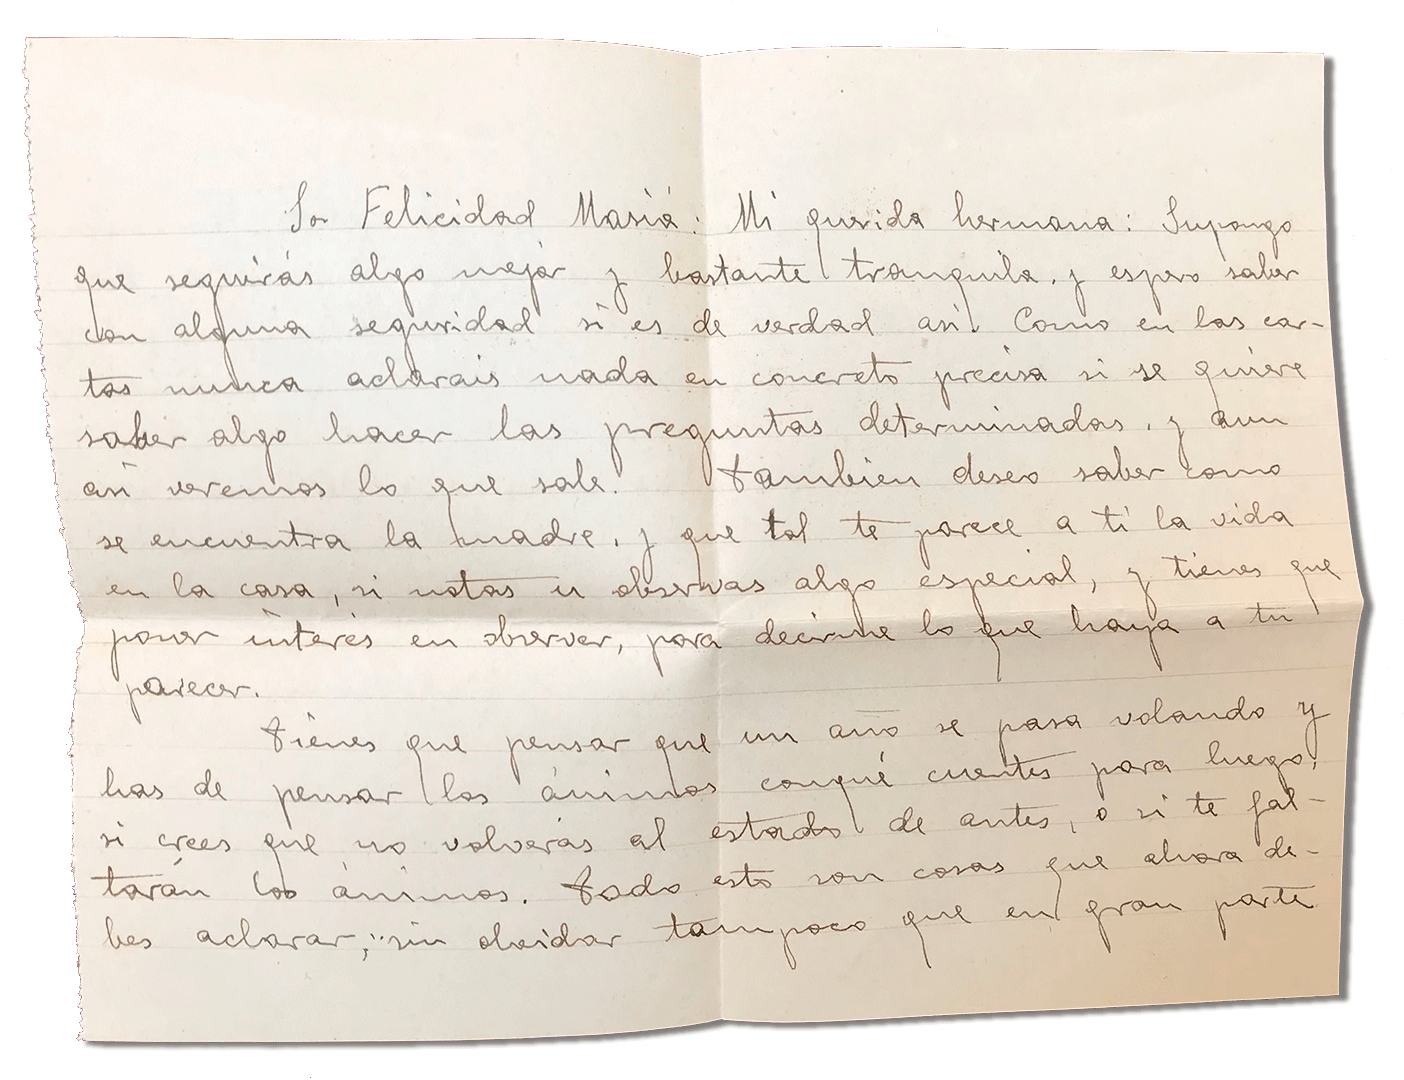 Sor Felicidad Masiá: Mi querida hermana: Supongo
que seguirás algo mejor y bastante tranquila, y espero saber
con alguna seguridad si es de verdad asi. Como en las car-
tas nunca aclarais nada en concreto precisa si se quiere
saber algo hacer las preguntas determinadas, y aun
asi veremos lo que sale. Tambien deseo saber como
se encuentra la madre, y que tal te parece a ti la vida
en la casa, si notas u observas algo especial, y tienes que
poner interés en observer, para decirme lo que haya a tu
parecer.
Tienes que pensar que un año se pasa volando y
has de pensar los ánimos conqué cuentes para luego,
si crees que no volverás al estado de antes, o si te fal-
tarán los ánimos. Todo esto son cosas que ahora de-
bes aclarar, sin olvidar tampoco que en gran parte